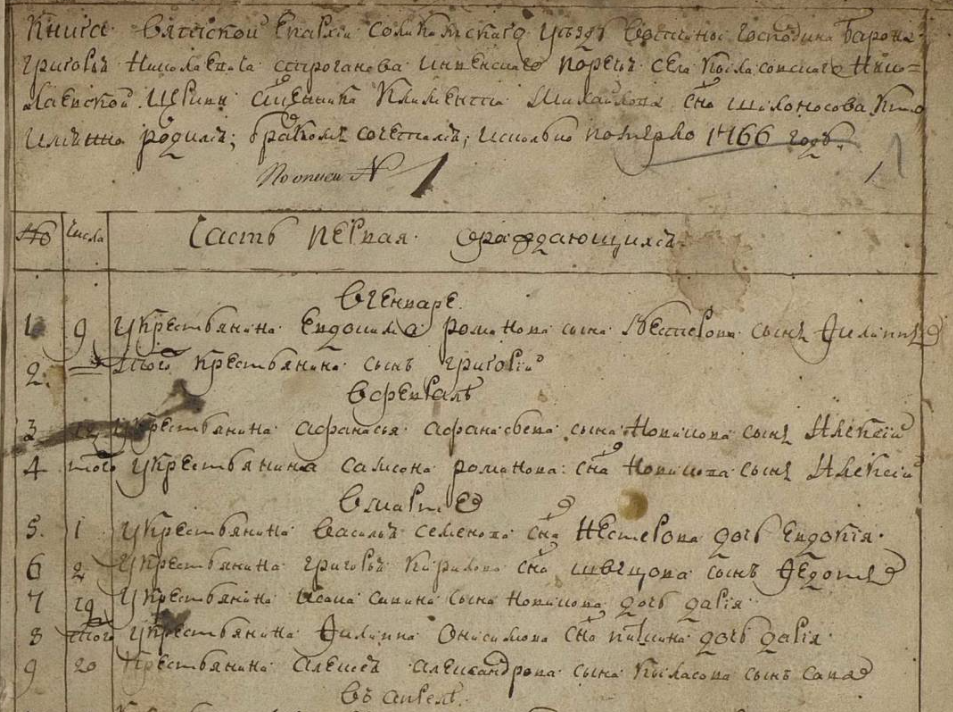 Книга Вятской Епархіи Соликамскаго уѣзда вотчины Господина Барона
григорья Николаевича строганова Инвенскаго поречья села Кыласовскаго Нико=
лаевской церкви священника Климента Михайлова сна Шилоносова Кто
имянно родился; бракомъ сочетался; и сколько померло 1766 годъ.
По описи N 1
No числа Часть первая о раждающихся
В генваре
1 9 У крестьянина Евдокима романова сына Нестерова сынъ Филиппъ
2. того крестьянина сынъ григорій
В феврале
3 12 У крестьянина афанасья афанасьева сына Новикова сынъ Алексій
4 того У крестьянина самсона романова сна Новикова сынъ Алексій
В марте
5. 1 У крестьянина василья семенова сна Нестерова дочь Евдокія.
6 2 У крестьянина григорья Кирилова сна швецова сынъ Федотъ
7 19 У крестьянина Исака савина сына Новикова дочь дарія
8 того У крестьянина Филиппа Онисимова сна дочь дарія.
9 20 крестьянина алексея александрова сына Кыласова сынъ сава
въ апреле.